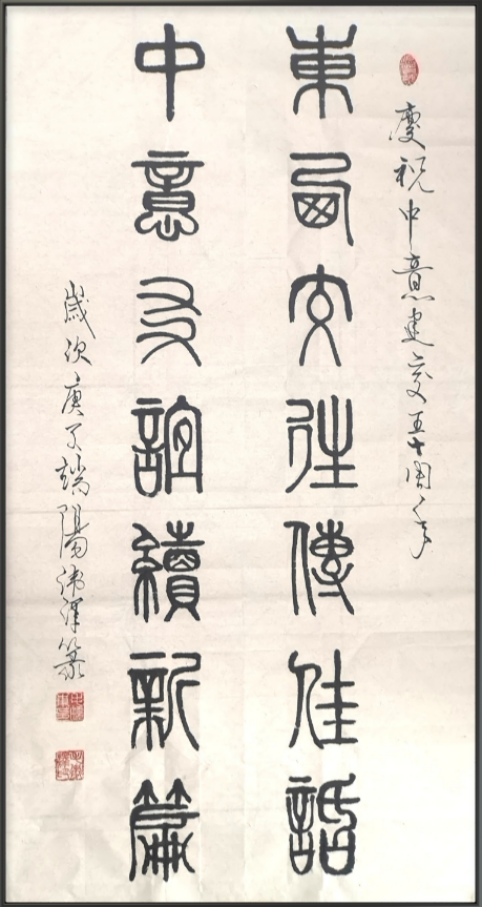 慶祝中意建交五十周年
東西交往傳佳話
中意友誼續新篇
歲次庚子端陽 篆